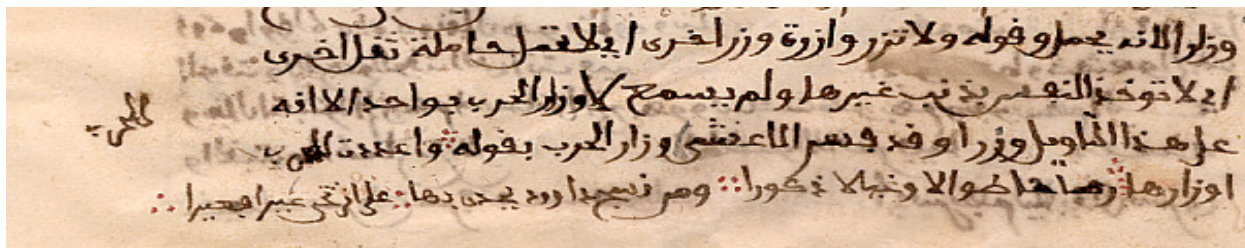 وزرا لانه يحمل وقوله ولا تزر وازرة وزر اخرى اي لا تحمل حاملة ثقل اخرى
اي لا توخذ النفس بذنب غيرها ولم يسمع لاوزار الحرب بواحد الا انه
على هذا التاويل وزر وقد فسر الاعشى اوزار الحرب بقوله واعددت للحرب
للحرب
اوزارها رماحا طوالا وخيلا ذكورا ومن نسج داوود يحدى بها على اثر عيرا فعيرا